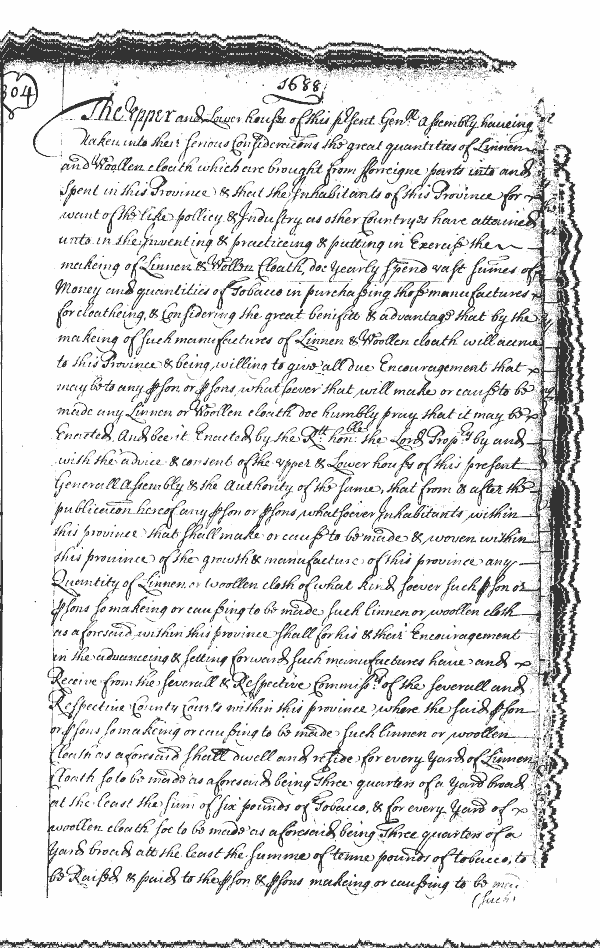 304
1688
The Upper and Lower houses of this psent Genll Assembly haveing
taken into their serious Consideracons the great quantities of Linnen
and Woollen cloath which are brought from fforreigne parts into and
Spent in this Province & that the Inhabitants of this Province for
want of the like pollicy & Industry as other Countryes have attained
unto in the Inventing & practiceing & putting in Exercise the
makeing of Linnen & Wollen Cloath, doe Yearly Spend vast sumes of
Money and quantities of Tobacco in purchasing those manufactures
for cloatheing, & Considering the great benefitt & advantage that by the
makeing of such manufactures of Linnen & Woollen cloath will accrue
to this Province & being willing to give all due Encouragement that
may be to any pson or psons whatsoever that will make or cause to be
made any Linnen or Woollen cloath doe humbly pray that it may be
Enacted, And bee it Enacted by the Rtt honble the Lord Propry by and
with the advice & consent of the upper & Lower houses of this present
Generall Assembly & the Authority of the same, that from & after the
publicacon hereof any pson or psons whatsoever Inhabitants within
this province that shall make or cause to be made & woven within
this province of the growth & manufacture of this province any
Quantity of Linnen or woollen cloth of what kind soever such pson or
psons so makeing or causing to be made such linnen or woollen cloth
as aforesaid within this province shall for his & their Encouragement
in the advanceing & setting forward such manufactures have and
Receive from the severall & Respective Commissrs of the severall and
Respective County Courts within this province where the said pson
or psons so makeing or causing to be made such linnen or woollen
Cloath as aforesaid shall dwell and reside for every Yard of Linnen
Cloath so to be made as aforesaid being Three quarters of a Yard broad
at the least the sum of six pounds of Tobacco, & for every Yard of
woollen cloath soe to be made as aforesaid being Three quarters of a
Yard broad att the least the summe of tenne pounds of tobacco, to
be Raised & paid to the pson & psons makeing or causing to be made
(such